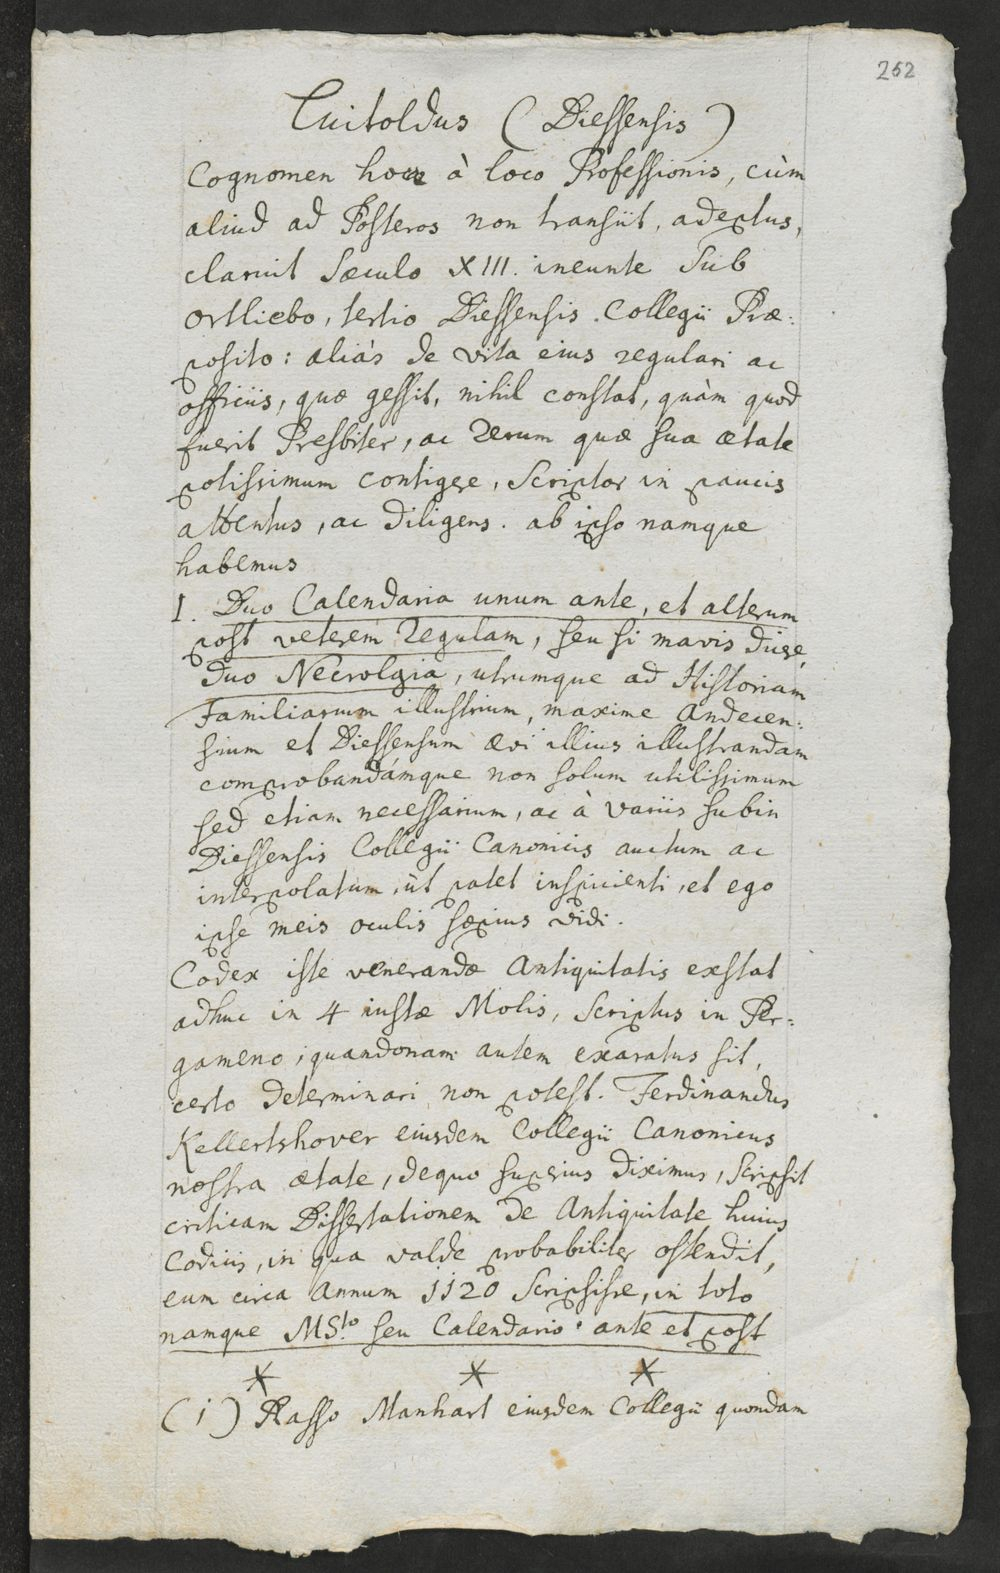 262
Luitoldus (Diessensis)
Cognomen hoc à loco Professionis, cùm
aliud ad Posteros non transiit, adeptus,
claruit Sæculo XIII. ineunte sub
Ortliebo, tertio Diessensis Collegii Præ-
posito: aliàs de vita eius regulari ac
officiis, quæ gessit, nihil constat, quàm quod
fuerit Presbiter, ac rerum quæ sua ætate
potissimum contigere, Scriptor in paucis
attentus, ac diligens. ab ipso namque
habemus
I. Duo Calendaria unum ante, et alterum
post veterem regulam, seu si mavis dicere,
duo Necrolgia, utrumque ad Historiam
Familiarum illustrium, maxime Andecen-
sium et Diessensum ævi illius illustrandam
comprobandámque non solum utilissimum
sed etiam necessarium, ac à variis subin
Diessensis Collegii Canonicis auctum ac
interpolatum, ùt patet inspicienti, et ego
ipse meis oculis sæpius vidi.
Codex iste venerandæ Antiquitatis exstat
adhuc in 4 iustæ Molis, Scriptus in Per-
gameno; quandonam autem exaratus sit,
certo determinari non potest. Ferdinandus
Kellertshover eiusdem Collegii Canonicus
nostra ætate, dequo superius diximus, scripsit
criticam Dissertationem de Antiquitate huius
Codicis, in qua valde probabiliter ostendit,
eum circa Annum 1120 Scripsisse, in toto
namque MS.to seu Calendario ante et post
* * *
(1) Rasso Manhart eiusdem Collegii quondam